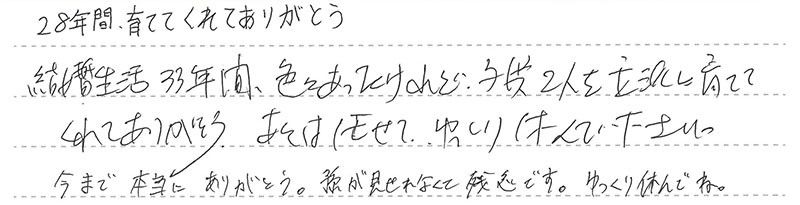 28年間、育ててくれてありがとう
結婚生活33年間、色々あったけれど、子供2人を立派に育てて
くれてありがとう あとは任せて、ゆっくり休んで下さいっ
今まで 本当に ありがとう。孫が見せれなくて残念です。ゆっくり休んでね。